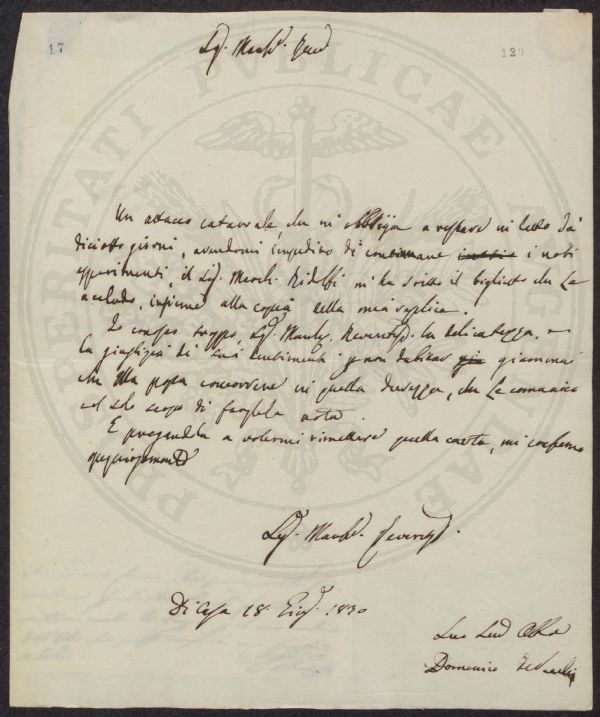 17
129
Sig. March. Rever.
Un attacco catarrale, che mi obbliga a restare in letto da
diciotto giorni, avendomi impedito di continuare i noti
sperimenti, il Sig. March. Ridolfi mi ha scritto il biglietto che Le
accludo, insieme alla copia della mia replica.
Io conosco troppo, Sig. March. la delicatezza, e
la giustizia de' suoi sentimenti p non dubitar giammai
che Ella possa concorrere in quella che Le comunico
col solo scopo di fargliela nota.
E pregandola a volermi rimettere quella carta, mi confermo
Sig. March.
Di Casa 18. 1830
Domenico
PROSPERITATI PUBLICAE AUGENDAE